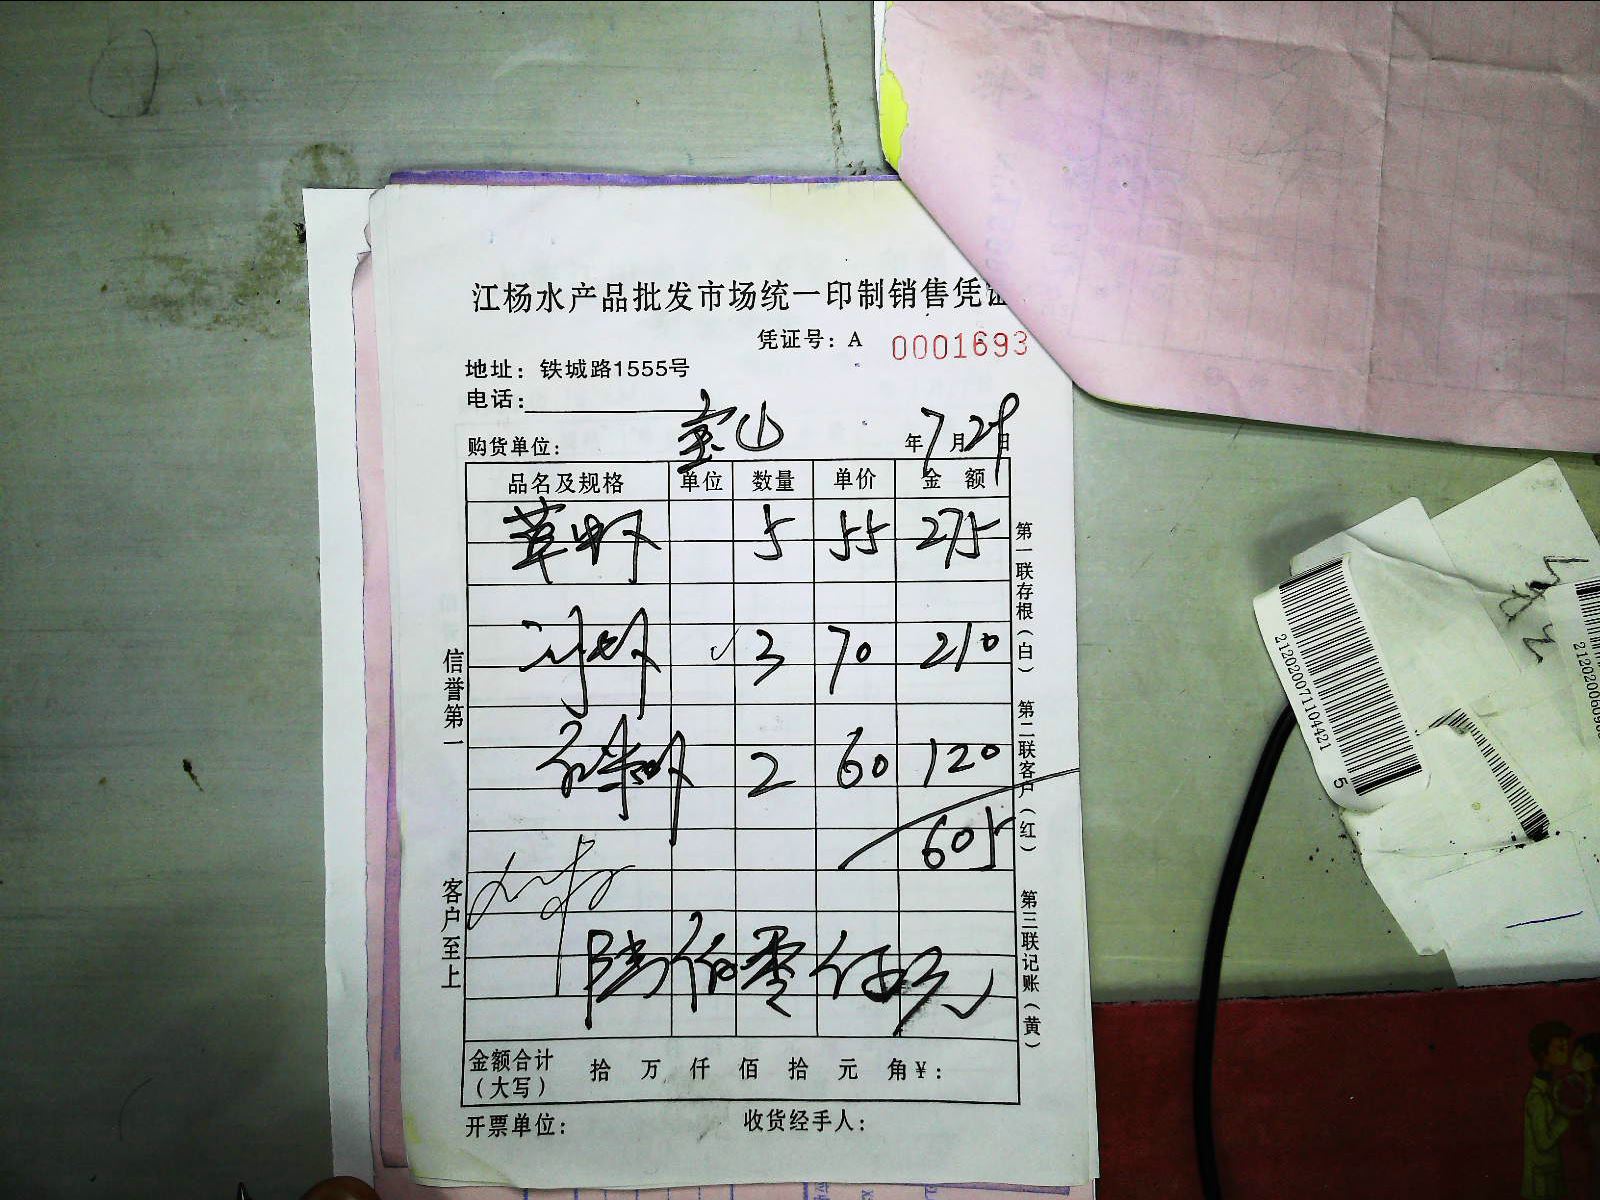 江杨水产品批发市场统一印制销售凭证
凭证号：A 0001693
地址：铁城路1555号
电话：
购货单位：宝山 年7月29日
品名及规格 单位 数量 单价 金额
草虾 5 55 275
3 70 210
2 60 120
605
陆佰零伍元
金额合计（大写） 拾 万 仟 佰 拾 元 角￥：
开票单位： 收货经手人：
信誉第一
客户至上
第一联存根（白）
第二联客户（红）
第三联记账（黄）
2120200711044215